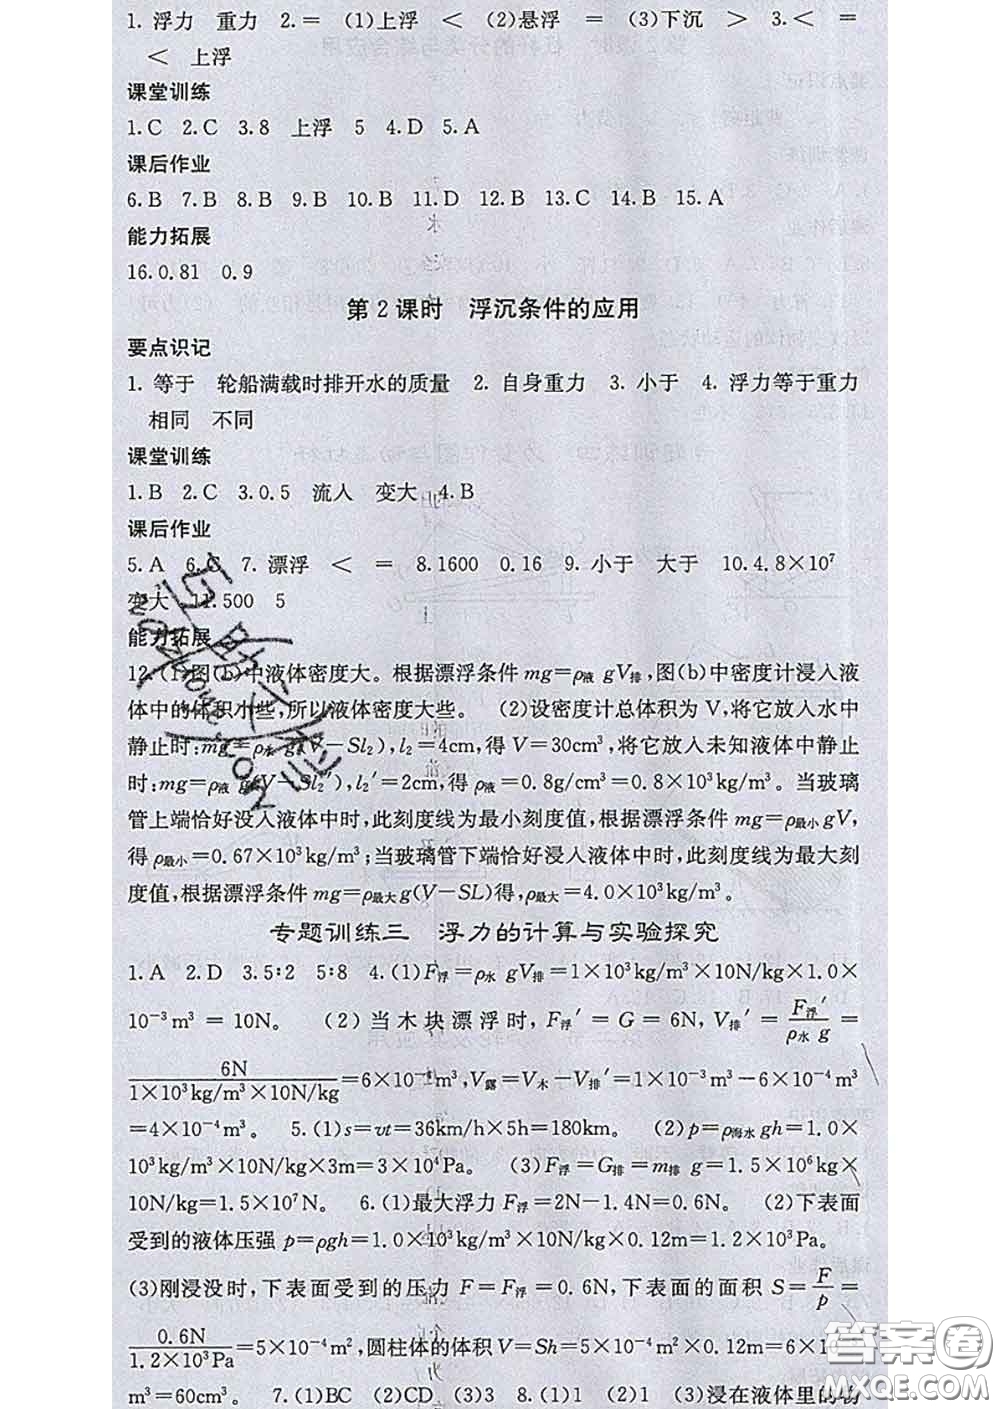 1. 浮力 重力 2. = (1)上浮 < (2)悬浮 = (3)下沉 > 3. < =
< 上浮
课堂训练
1. C 2. C 3. 8 上浮 5 4. D 5. A
课后作业
6. B 7. B 8. B 9. B 10. B 11. D 12. B 13. C 14. B 15. A
能力拓展
16. 0.81 0.9
第2课时 浮沉条件的应用
要点识记
1. 等于 轮船满载时排开水的质量 2. 自身重力 3. 小于 4. 浮力等于重力
相同 不同
课堂训练
1. B 2. C 3. 0.5 流入 变大 4. B
课后作业
5. A 6. C 7. 漂浮 < = 8. 1600 0.16 9. 小于 大于 10. 4.8×10⁷
变大 11. 500 5
能力拓展
12. (1)图(b)中液体密度大。根据漂浮条件 mg=ρ液 gV排,图(b)中密度计浸入液
体中的体积小些,所以液体密度大些。 (2)设密度计总体积为 V,将它放入水中
静止时:mg=ρ水 g(V-Sl₂),l₂=4cm,得 V=30cm³,将它放入未知液体中静止
时:mg=ρ液 g(V-Sl₂′),l₂′=2cm,得 ρ液=0.8g/cm³=0.8×10³kg/m³。当玻璃
管上端恰好没入液体中时,此刻度线为最小刻度值,根据漂浮条件 mg=ρ最小gV,
得 ρ最小=0.67×10³kg/m³;当玻璃管下端恰好浸入液体中时,此刻度线为最大刻
度值,根据漂浮条件 mg=ρ最大g(V-SL)得,ρ最大=4.0×10³kg/m³。
专题训练三 浮力的计算与实验探究
1. A 2. D 3. 5∶2 5∶8 4. (1)F浮=ρ水 gV排=1×10³kg/m³×10N/kg×1.0×
10⁻³m³=10N。 (2)当木块漂浮时,F浮′=G=6N,V排′=F浮′/ρ水 g=
6N/1×10³kg/m³×10N/kg=6×10⁻⁴m³,V露=V木-V排′=1×10⁻³m³-6×10⁻⁴m³
=4×10⁻⁴m³。 5. (1)s=vt=36km/h×5h=180km。 (2)p=ρ海水gh=1.0×
10³kg/m³×10N/kg×3m=3×10⁴Pa。 (3)F浮=G排=m排 g=1.5×10⁶kg×
10N/kg=1.5×10⁷N。 6. (1)最大浮力 F浮=2N-1.4N=0.6N。 (2)下表面
受到的液体压强 p=ρgh=1.0×10³kg/m³×10N/kg×0.12m=1.2×10³Pa。
(3)刚浸没时,下表面受到的压力 F=F浮=0.6N,下表面的面积 S=F/p=
0.6N/1.2×10³Pa=5×10⁻⁴m²,圆柱体的体积 V=Sh=5×10⁻⁴m²×0.12m=6×10⁻⁵
m³=60cm³。 7. (1)BC (2)CD (3)3 8. (1)1 (2)1 (3)浸在液体里的物
答案圈
MXQE.COM